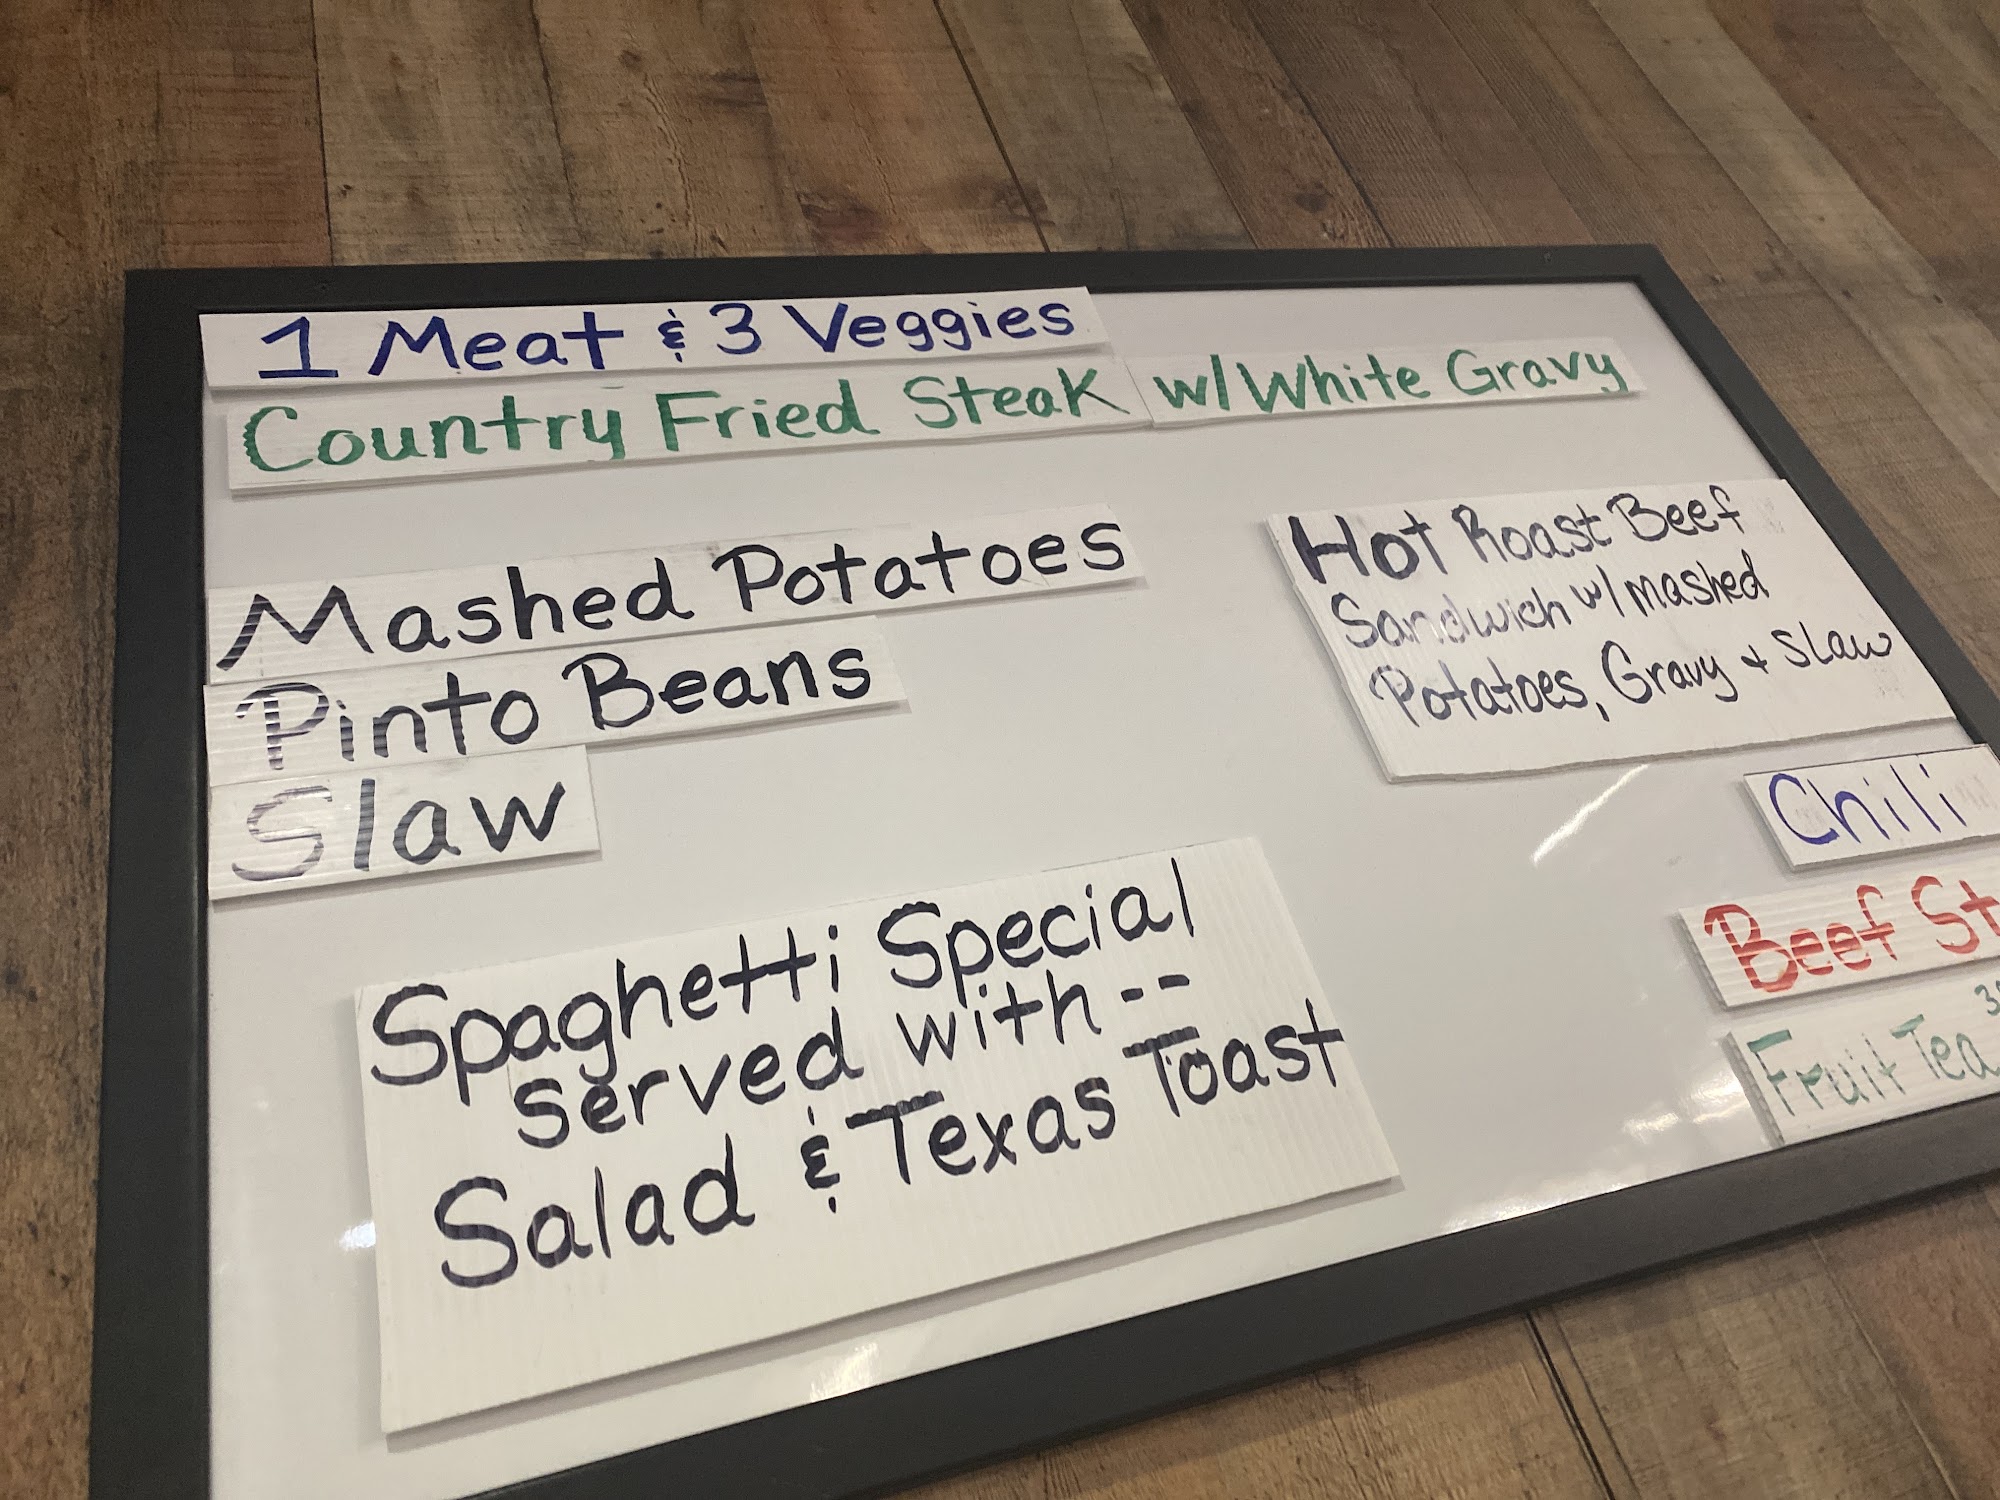 1 Meat & 3 Veggies
Country Fried Steak w/ White Gravy
Mashed Potatoes
Pinto Beans
Slaw
Hot Roast Beef
Sandwich w/ mashed
Potatoes, Gravy + Slaw
Chili
Beef
Fruit Tea
Spaghetti Special
Served with --
Salad & Texas Toast